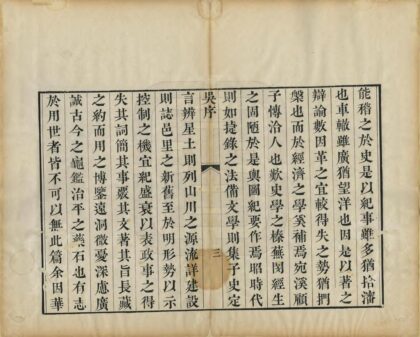 能稽之於史是以紀事雖多猶拾瀋
也車轍雖廣猶望洋也因是以著之
辯論數因革之宜較得失之勢猶捫
槃也而於經濟之學奚補焉宛溪顧
子博洽人也歎史學之榛蕪閔經生
之固陋於是輿圖紀要作焉昭時代
則如捷錄之法備文學則集子史定
吳序
三
言辨星土則列山川之源流詳建設
則誌邑里之新舊至於明形勢以示
控制之機宜紀盛衰以表政事之得
失其詞簡其事覈其文著其旨長藏
之約而用之博鑒遠洞微憂深慮廣
誠古今之龜鑑治平之藥石也有志
於用世者皆不可以無此篇余因華